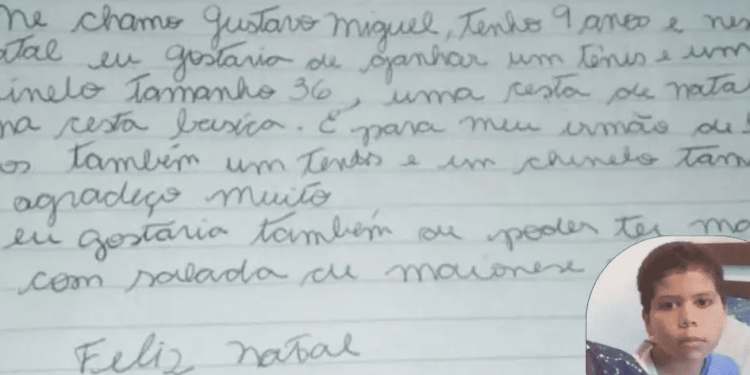 me chamo Gustavo Miguel, tenho 9 anos e nes
atal eu gostaria de ganhar um tênis e um
inelo tamanho 36, uma cesta de nata
ma cesta basica. E para meu irmão de
os também um tenis e um chinelo tam
agradeço muito
eu gostaria também de poder ter ma
com salada de maionese
Feliz natal